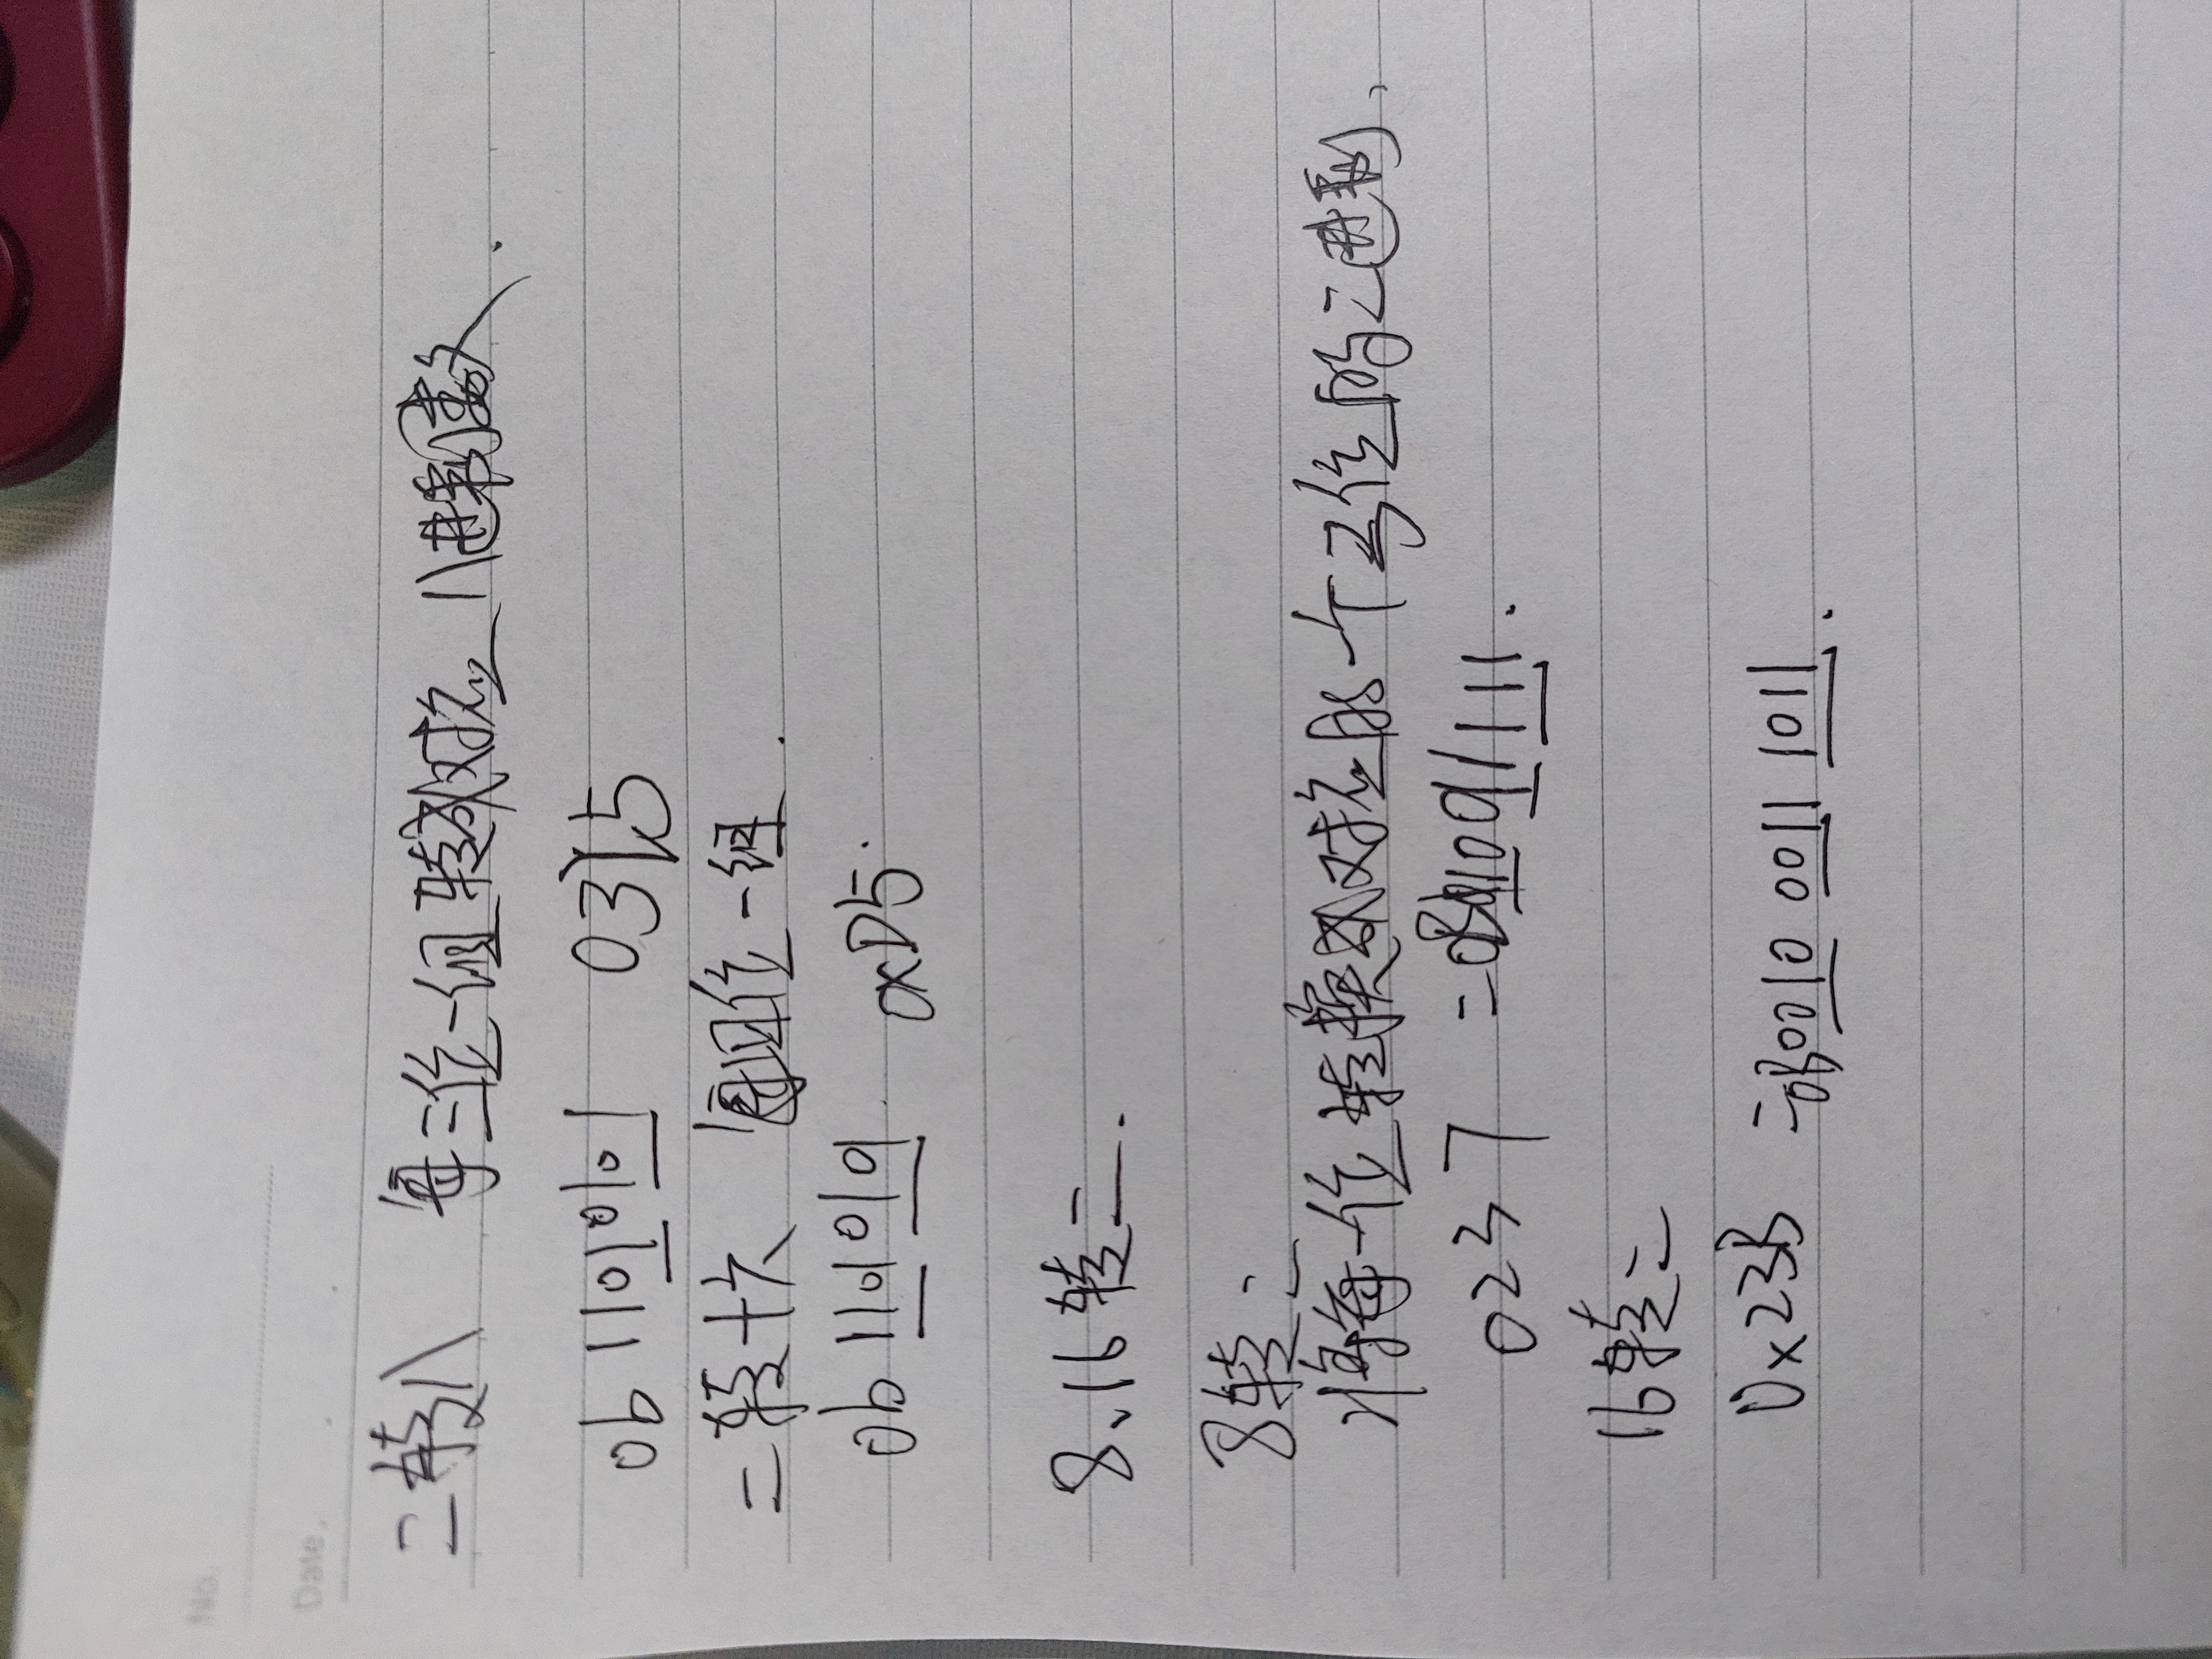 No.
Date.
二转八 每三位一组 转成对应八进制数.
0b 11010101 0325
二转十六 每四位一组.
0b 11010101 0xD5.
8、16转二.
8转二
将每一位转换成对应的一个3位的二进制、
0237 = 0b10011111.
16转二
0x23B = 0b0010 0011 1011.